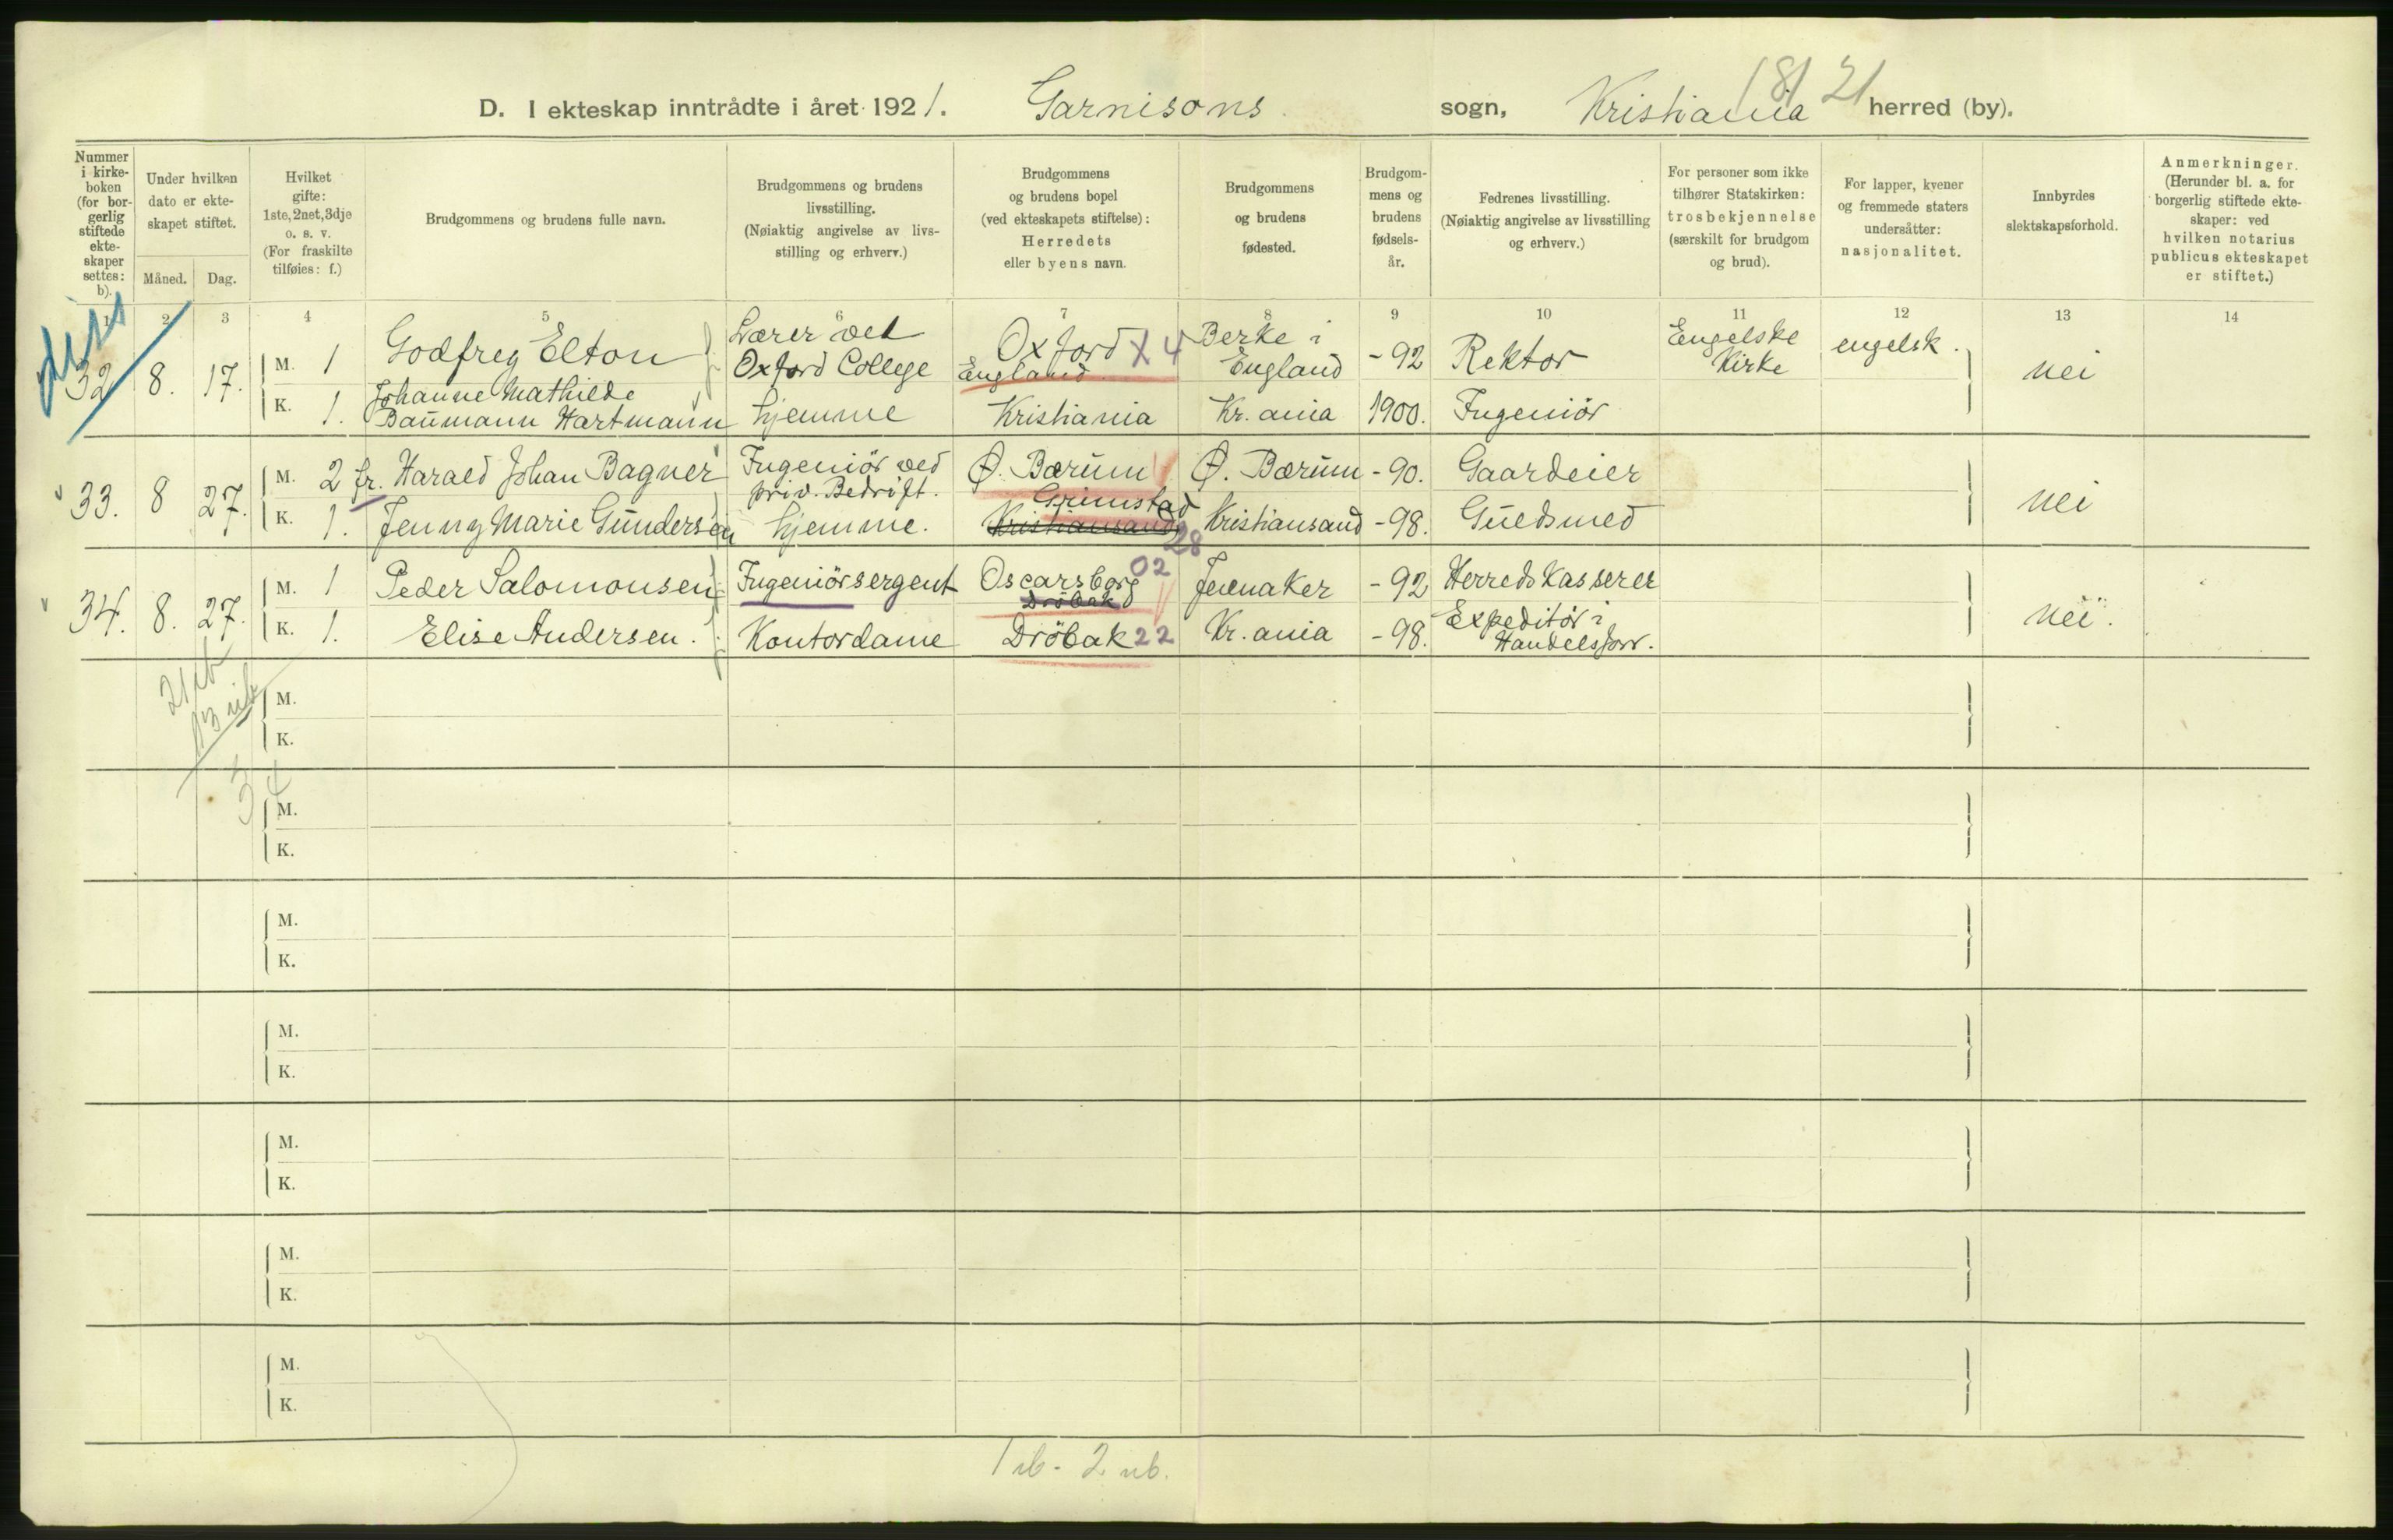 181 21
D. I ekteskap inntrådte i året 1921. Garnisons sogn, Kristiania herred (by).
Nummer
i kirke-
boken
(for bor-
gerlig
stiftede
ekte-
skaper
settes:
b).
Under hvilken
dato er ekte-
skapet stiftet.
Måned. Dag.
Hvilket
gifte:
1ste, 2net, 3dje
o. s. v.
(For fraskilte
tilføies: f.)
Brudgommens og brudens fulle navn.
Brudgommens og brudens
livsstilling.
(Nøiaktig angivelse av livs-
stilling og erhverv.)
Brudgommens
og brudens bopel
(ved ekteskapets stiftelse):
Herredets
eller byens navn.
Brudgommens
og brudens
fødested.
Brudgom-
mens og
brudens
fødsels-
år.
Fedrenes livsstilling.
(Nøiaktig angivelse av livsstilling
og erhverv.)
For personer som ikke
tilhører Statskirken:
trosbekjennelse
(særskilt for brudgom
og brud).
For lapper, kvener
og fremmede staters
undersåtter:
nasjonalitet.
Innbyrdes
slektskapsforhold.
Anmerkninger.
(Herunder bl. a. for
borgerlig stiftede ekte-
skaper: ved
hvilken notarius
publicus ekteskapet
er stiftet.)
1 2 3 4 5 6 7 8 9 10 11 12 13 14
32 8. 17. M. 1 Godfrey Elton Lærer ved Oxford College Oxford England X 4 Berke i England -92 Rektor Engelske Kirke engelsk. nei
K. 1. Johanne Mathilde Baumann Hartmann hjemme Kristiania Kr.ania 1900. Ingeniör
33. 8 27. M. 2 fr. Harald Johan Bagner Ingeniör ved priv. Bedrift. Ø. Bærum Ø. Bærum -90. Gaardeier nei
K. 1. Jenny Marie Gundersen hjemme. Grimstad Kristiansand 28 Kristiansand -98. Guldsmed
34. 8. 27. M. 1 Peder Salomonsen Ingeniörsergent Oscarsborg Dröbak 02 Jevnaker -92 Herredskasserer nei.
K. 1. Elise Andersen. Kontordame Dröbak 22 Kr.ania -98. Expeditör i Handelsforr.
M.
K.
M.
K.
M.
K.
M.
K.
M.
K.
M.
K.
M.
K.
1 ub - 2 ub.